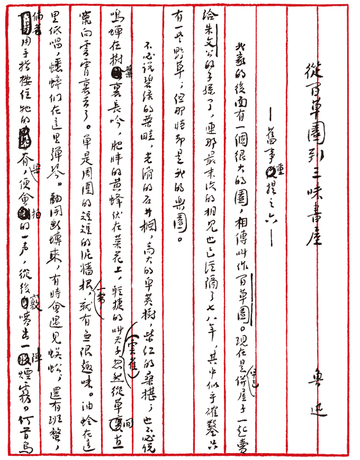 從百草園到三味書屋
——舊事重提之六——
魯迅
我家的後面有一個很大的園,相傳叫作百草園。現在是早已併屋子一起賣
給朱文公的子孫了,連那最末次的相見也已經隔了七八年,其中似乎確鑿只
有一些野草;但那時卻是我的樂園。
不必說碧綠的菜畦,光滑的石井欄,高大的皂莢樹,紫紅的桑椹;也不必說
鳴蟬在樹葉裏長吟,肥胖的黃蜂伏在菜花上,輕捷的叫天子(雲雀)忽然從草間直
竄向雲霄裏去了。單是周圍的短短的泥牆根一帶,就有無限趣味。油蛉在這
里低唱,蟋蟀們在這里彈琴。翻開斷磚來,有時會遇見蜈蚣;還有斑蝥,
倘若用手指按住牠的脊梁,便會拍的一声,從後竅噴出一陣煙霧。何首烏